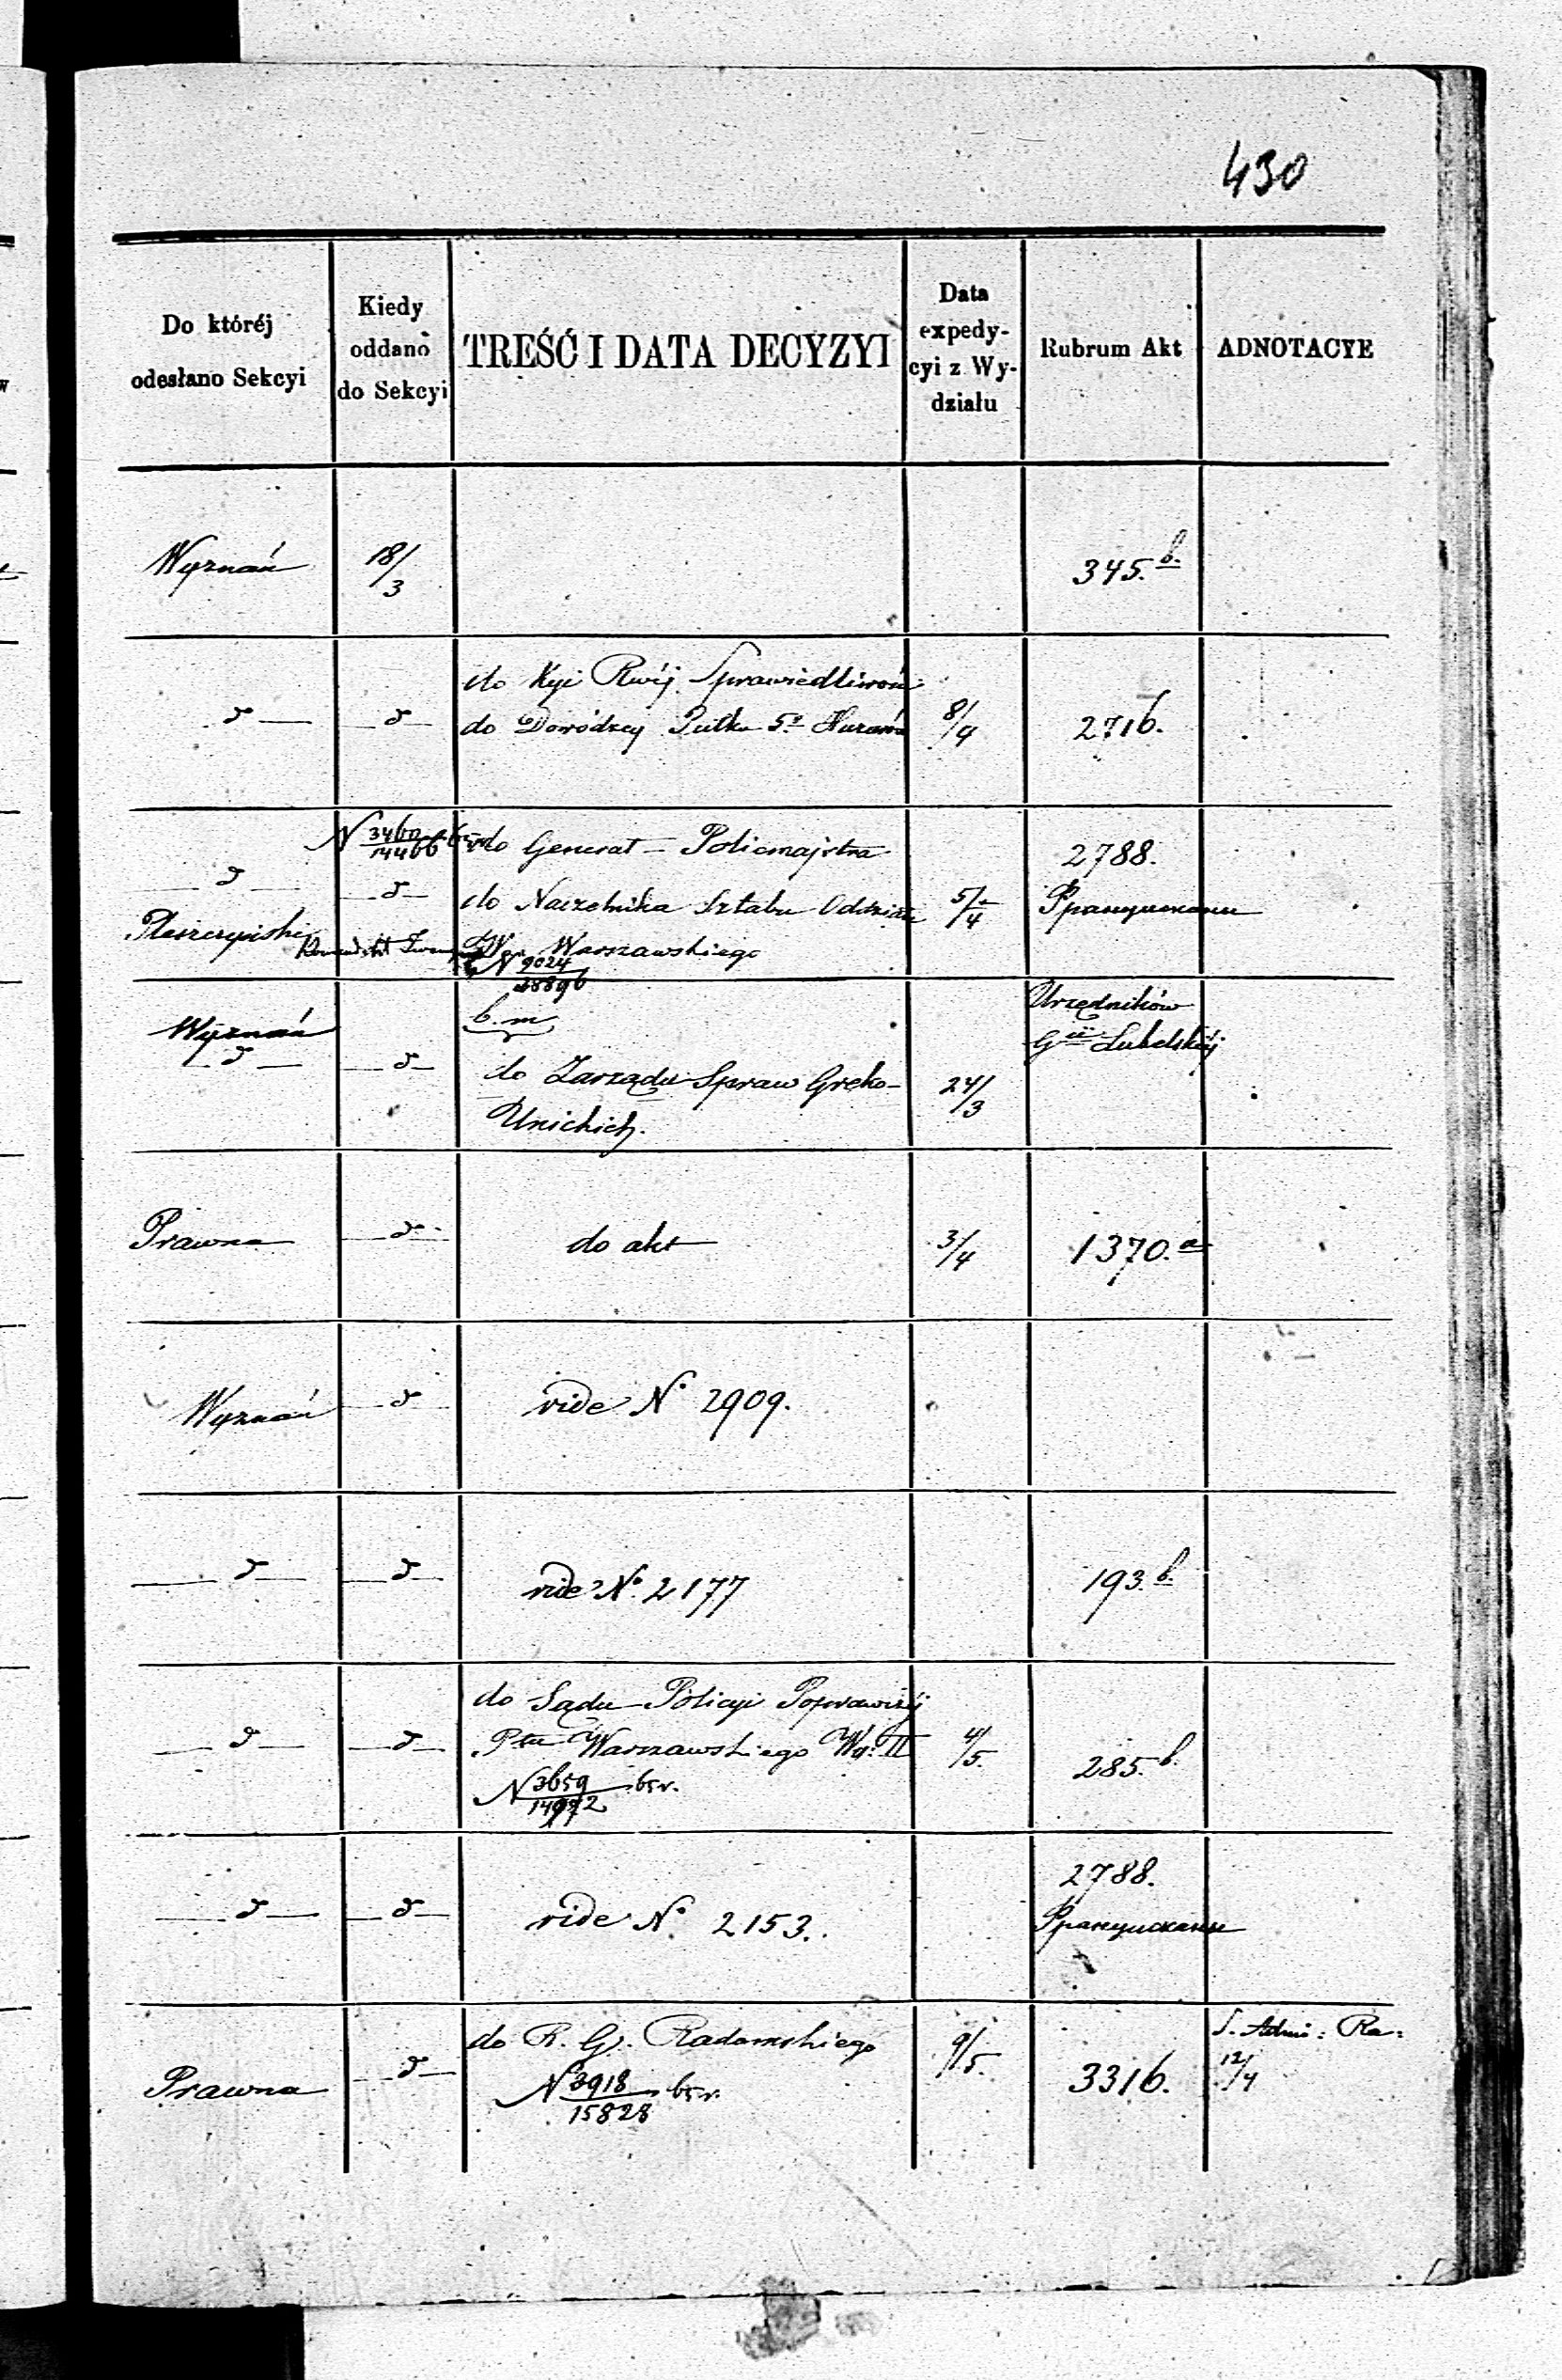 430
Do któréj
odesłano Sekcyi
Kiedy
oddano
do Sekcyi
TREŚĆ I DATA DECYZYI
Data
expedy-
cyi z Wy-
działu
Rubrum Akt
ADNOTACYE
Wyznań
18/3
345.b.
do Kyi Rwéj Sprawiedliwości
do Dowódzcy Pułku 5o Huzarów
8/4
2716.
N 3460/14466
do Generał-Policmajstra
2788.
do Naczelnika Sztabu Oddziału
5/4
Францискане
Pleszczyński
Warszawskiego
N 9024
b. m
Urzędników
Gii Lubelskiéj
Wyznań
do Zarządu Spraw Greko-
24/3
Unickich.
Prawna
do akt
3/4
1370.a
Wyznań
vide No 2909.
vide No. 2177
193.b.
do Sądu Policyi Poprawczéj
Ptu Warszawskiego Wy. II
4/5.
285.b.
N 3659/14972
2788.
vide No 2153.
Францискане
do R. G. Radomskiego
9/5.
S. Admi: Ra:
12/4
Prawna
N 3918/15828
3316.